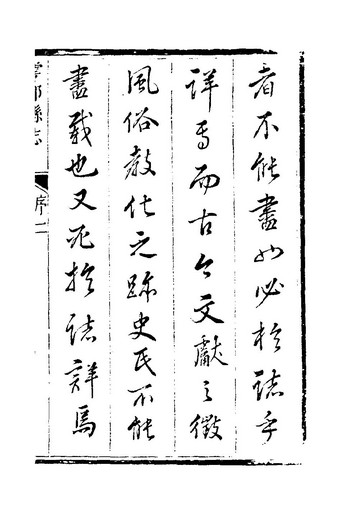 者不能盡也必於誌乎
詳焉而古今文獻之徵
風俗教化之跡史氏不能
盡載也又死於誌詳焉
縣志
序二